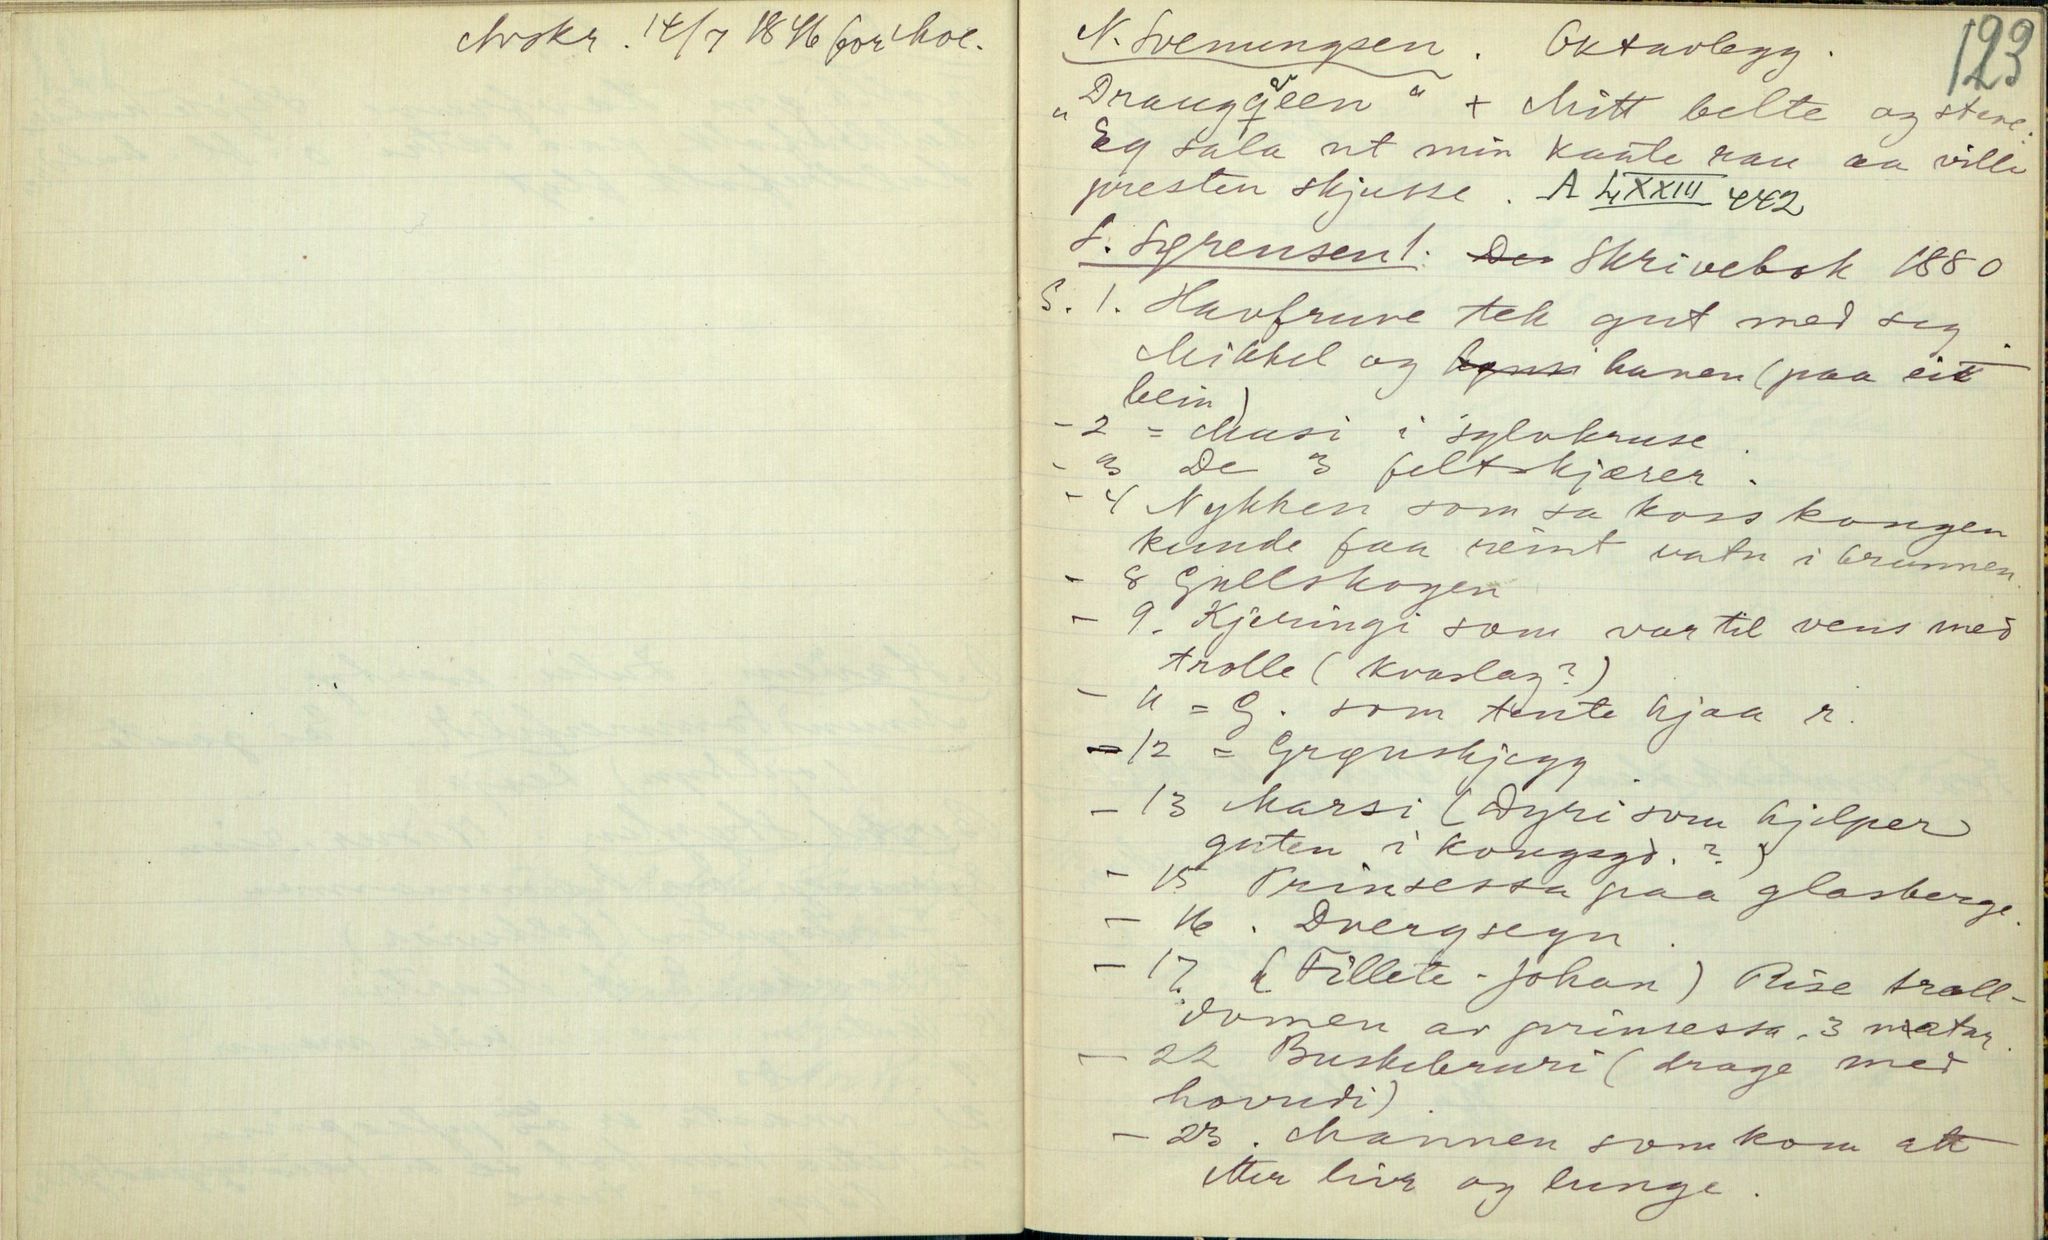 Avskr. 14/7 1846 for Moe.
123
N. Svenungsen. Oktavlegg.
"Draug een" + Mitt belte og stave.
Eg sala ut min kaate rau aa ville
presten skjusse. A LXXIII 442
S. Sørensen 1. Skrivebok 1880
S. 1. Havfruve tek gut med seg.
Mikkel og hanen (paa eit
bein)
- 2 = Musi i sylvkruse.
- 3 De 3 feltskjærer.
- 4 Nykken som sa koss kongen
kunde faa reint vatn i brunnen.
- 8 Gullskogen
- 9. Kjeringi som var til vens med
trolle (kvaslag?)
- 11 = G. som tente hjaa r.
- 12 = Grønskjegg.
- 13 Marsi (Dyri som hjelper
guten i kongsgd.?)
- 15 Prinsessa paa glasberge.
- 16. Dvergsegn.
- 17. (Fillete-Johan) Rise troll-
domen av prinsessa. 3 netar.
- 22 Buskebruri (drage med
hovudi).
- 23. Mannen som kom att
etter livr og lunge.